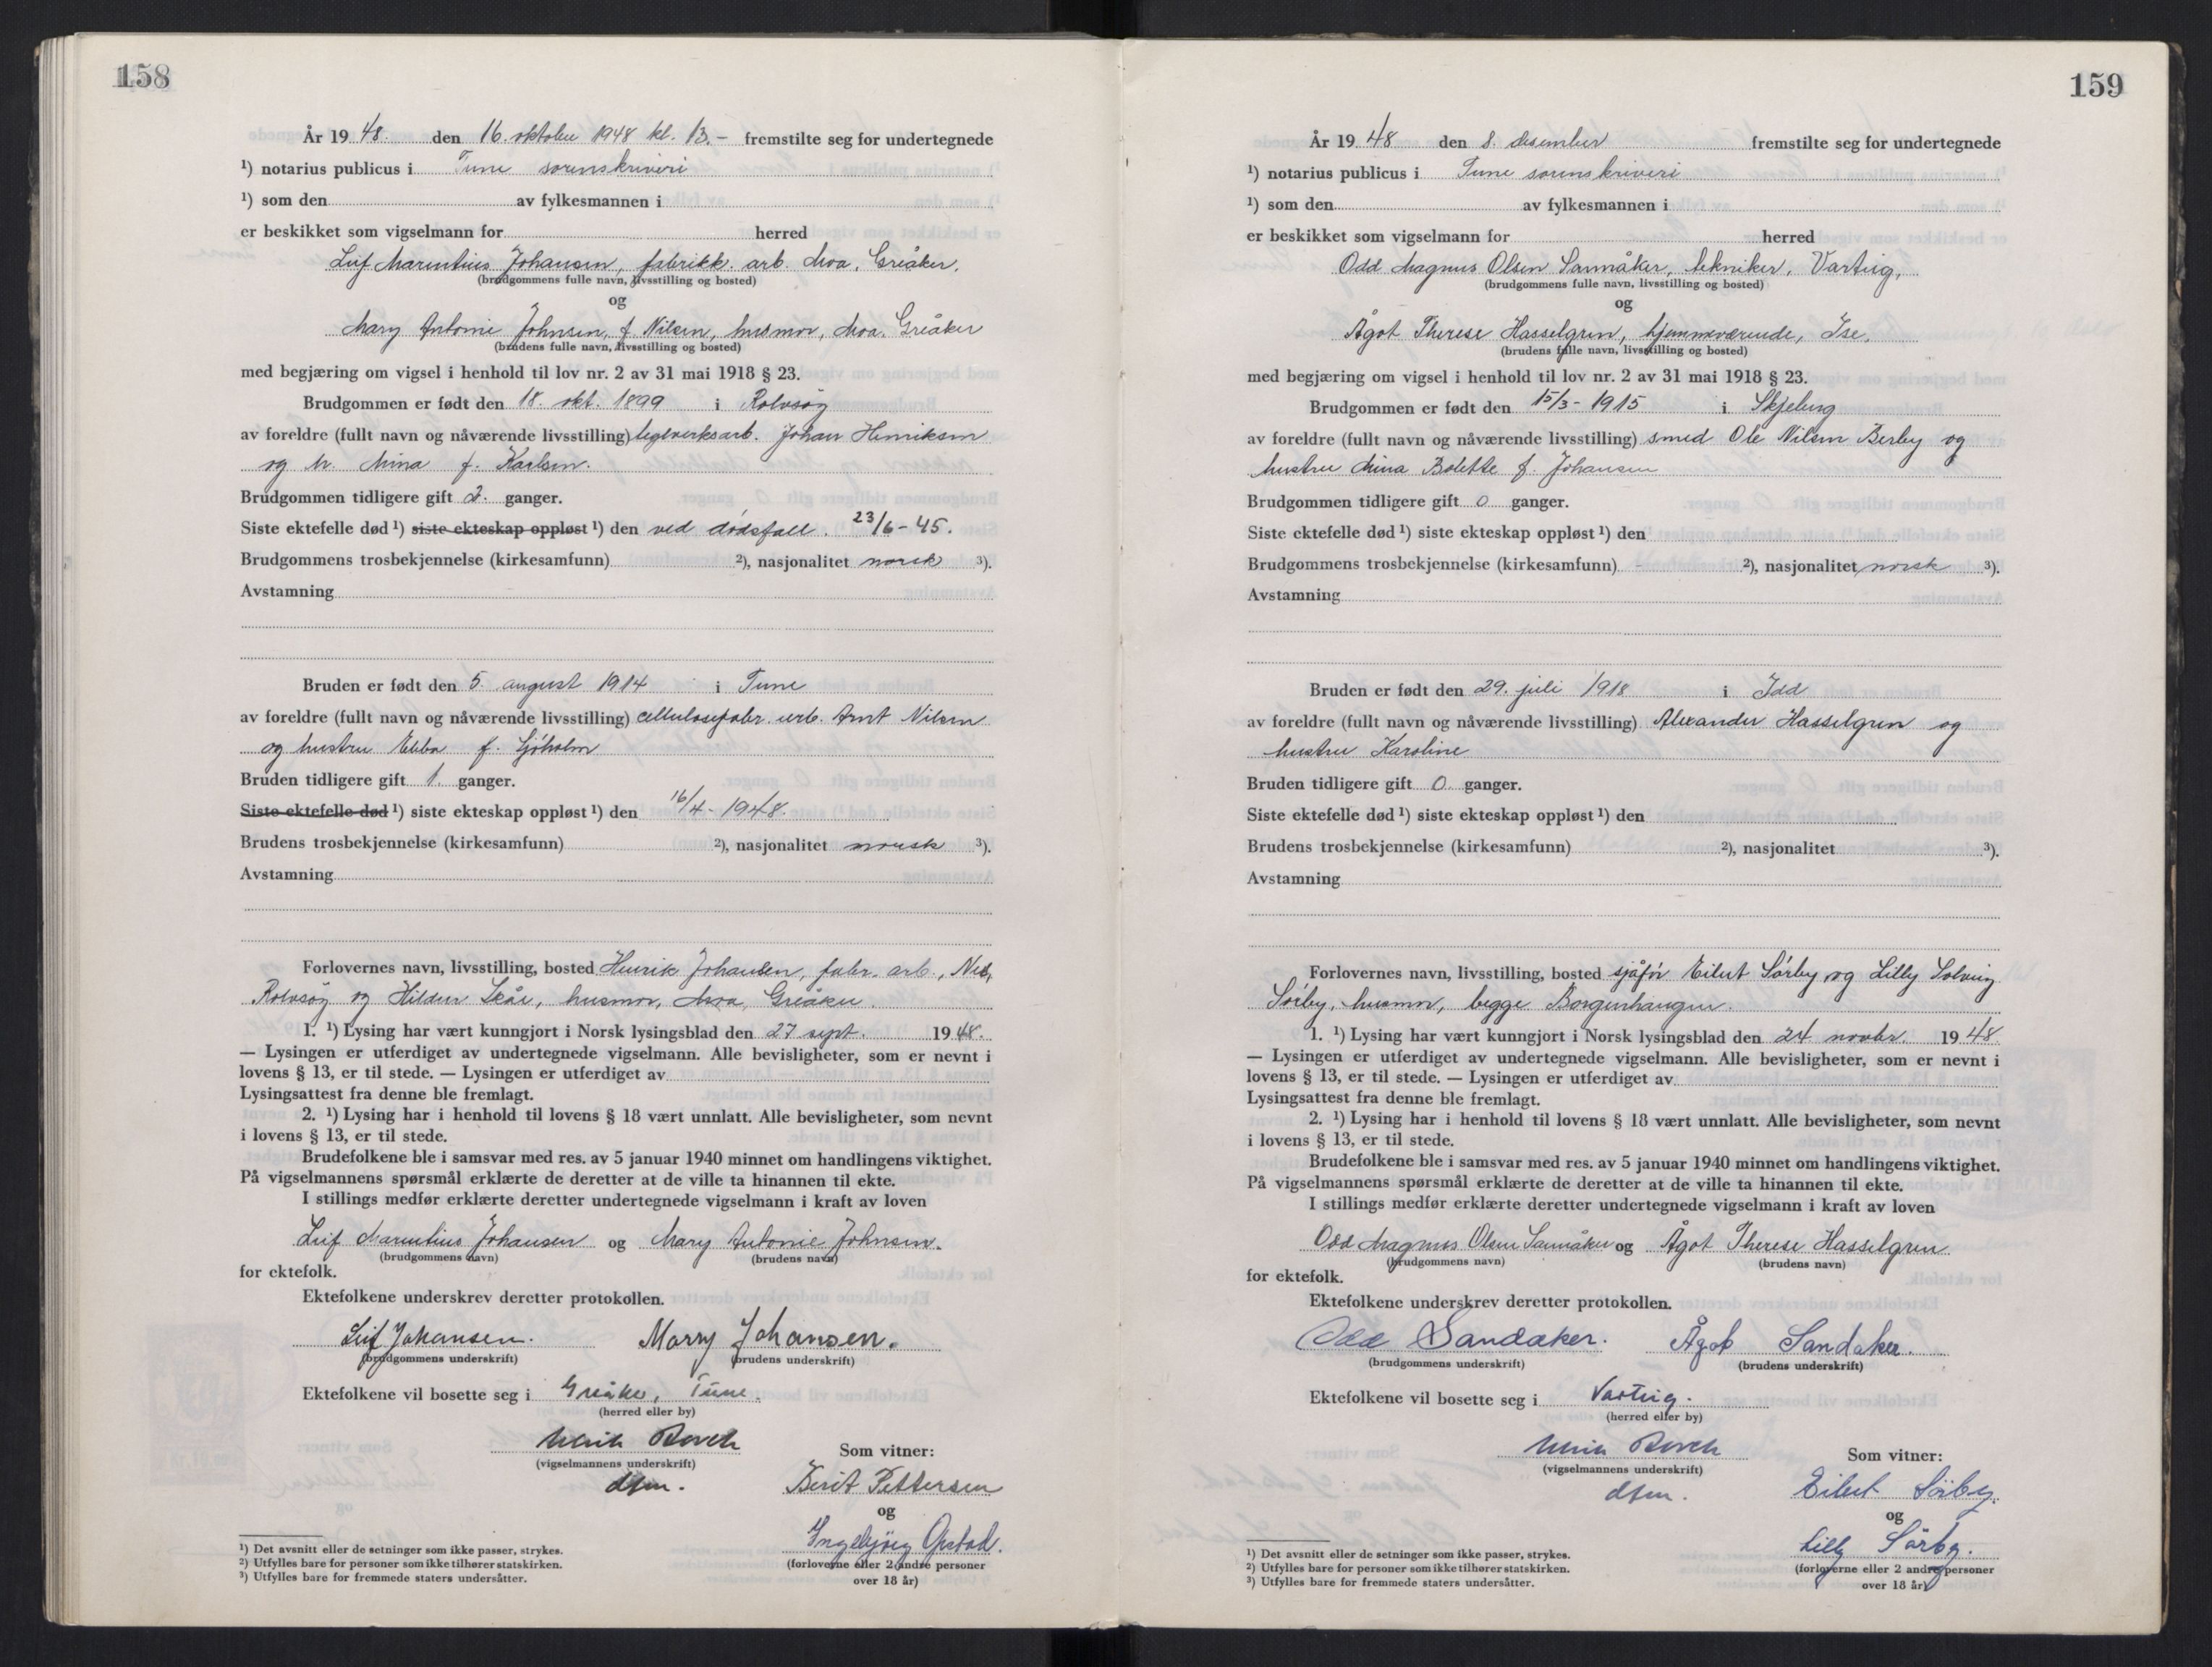 158
År 19 48. den 16. oktober 1948 kl. 13.- fremstilte seg for undertegnede
¹) notarius publicus i Tune sorenskriveri
¹) som den av fylkesmannen i
er beskikket som vigselmann for herred
Leif Marentius Johansen, fabrikk. arb. Moa, Greåker.
(brudgommens fulle navn, livsstilling og bosted)
og
Mary Antonie Johnsen, f. Nilsen, husmor, Moa. Greåker
(brudens fulle navn, livsstilling og bosted)
med begjæring om vigsel i henhold til lov nr. 2 av 31 mai 1918 § 23.
Brudgommen er født den 18. okt. 1899 i Rolvsøy
av foreldre (fullt navn og nåværende livsstilling) teglverksarb. Johan Henriksen
og h. Mina f. Karlsen.
Brudgommen tidligere gift 2. ganger.
Siste ektefelle død ¹) siste ekteskap oppløst ¹) den ved dødsfall. 23/6-45.
Brudgommens trosbekjennelse (kirkesamfunn) ²), nasjonalitet norsk ³).
Avstamning
Bruden er født den 5. august 1914 i Tune
av foreldre (fullt navn og nåværende livsstilling) cellulosefabr. arb. Arnt Nilsen
og hustru Ebba f. Sjöholm
Bruden tidligere gift 1. ganger.
Siste ektefelle død ¹) siste ekteskap oppløst ¹) den 16/4-1948.
Brudens trosbekjennelse (kirkesamfunn) ²), nasjonalitet norsk ³).
Avstamning
Forlovernes navn, livsstilling, bosted Henrik Johansen, fabr. arb.,
Rolvsøy og Hildur Skår, husmor, Moa, Greåker.
1. ¹) Lysing har vært kunngjort i Norsk lysingsblad den 27 sept. 19 48.
— Lysingen er utferdiget av undertegnede vigselmann. Alle bevisligheter, som er nevnt i
lovens § 13, er til stede. — Lysingen er utferdiget av
Lysingsattest fra denne ble fremlagt.
2. ¹) Lysing har i henhold til lovens § 18 vært unnlatt. Alle bevisligheter, som nevnt
i lovens § 13, er til stede.
Brudefolkene ble i samsvar med res. av 5 januar 1940 minnet om handlingens viktighet.
På vigselmannens spørsmål erklærte de deretter at de ville ta hinannen til ekte.
I stillings medfør erklærte deretter undertegnede vigselmann i kraft av loven
Leif Marentius Johansen og Mary Antonie Johnsen.
(brudgommens navn) (brudens navn)
for ektefolk.
Ektefolkene underskrev deretter protokollen.
Leif Johansen. Mary Johansen.
(brudgommens underskrift) (brudens underskrift)
Ektefolkene vil bosette seg i Greåker, Tune.
(herred eller by)
Ulrik Borch
(vigselmannens underskrift)
dfm.
Som vitner:
Berit Pettersen
og
Ingebjørg Opstad.
(forloverne eller 2 andre personer
over 18 år)
¹) Det avsnitt eller de setninger som ikke passer, strykes.
²) Utfylles bare for personer som ikke tilhører statskirken.
³) Utfylles bare for fremmede staters undersåtter.
159
År 19 48 den 8. desember fremstilte seg for undertegnede
¹) notarius publicus i Tune sorenskriveri
¹) som den av fylkesmannen i
er beskikket som vigselmann for herred
Odd Magnus Olsen Sannåker, tekniker, Varteig,
(brudgommens fulle navn, livsstilling og bosted)
og
Ågot Therese Hasselgren, hjemmeværende, Ise,
(brudens fulle navn, livsstilling og bosted)
med begjæring om vigsel i henhold til lov nr. 2 av 31 mai 1918 § 23.
Brudgommen er født den 15/3-1915 i Skjeberg
av foreldre (fullt navn og nåværende livsstilling) smed Ole Nilsen Berby og
hustru Mina Bolette f. Johansen
Brudgommen tidligere gift 0 ganger.
Siste ektefelle død ¹) siste ekteskap oppløst ¹) den
Brudgommens trosbekjennelse (kirkesamfunn) - ²), nasjonalitet norsk ³).
Avstamning
Bruden er født den 29. juli 1918 i Idd
av foreldre (fullt navn og nåværende livsstilling) Alexander Hasselgren og
hustru Karoline
Bruden tidligere gift 0. ganger.
Siste ektefelle død ¹) siste ekteskap oppløst ¹) den
Brudens trosbekjennelse (kirkesamfunn) ²), nasjonalitet ³).
Avstamning
Forlovernes navn, livsstilling, bosted sjåfør Eilert Sørby og Lilly Solveig
Sørby, husmor, begge Borgenhaugen.
1. ¹) Lysing har vært kunngjort i Norsk lysingsblad den 24 novbr. 19 48
— Lysingen er utferdiget av undertegnede vigselmann. Alle bevisligheter, som er nevnt i
lovens § 13, er til stede. — Lysingen er utferdiget av
Lysingsattest fra denne ble fremlagt.
2. ¹) Lysing har i henhold til lovens § 18 vært unnlatt. Alle bevisligheter, som nevnt
i lovens § 13, er til stede.
Brudefolkene ble i samsvar med res. av 5 januar 1940 minnet om handlingens viktighet.
På vigselmannens spørsmål erklærte de deretter at de ville ta hinannen til ekte.
I stillings medfør erklærte deretter undertegnede vigselmann i kraft av loven
Odd Magnus Olsen Sannåker og Ågot Therese Hasselgren
(brudgommens navn) (brudens navn)
for ektefolk.
Ektefolkene underskrev deretter protokollen.
Odd Sandaker. Ågot Sandaker.
(brudgommens underskrift) (brudens underskrift)
Ektefolkene vil bosette seg i Varteig.
(herred eller by)
Ulrik Borch
(vigselmannens underskrift)
dfm.
Som vitner:
Eilert Sörby.
og
Lilly Sörby.
(forloverne eller 2 andre personer
over 18 år)
¹) Det avsnitt eller de setninger som ikke passer, strykes.
²) Utfylles bare for personer som ikke tilhører statskirken.
³) Utfylles bare for fremmede staters undersåtter.